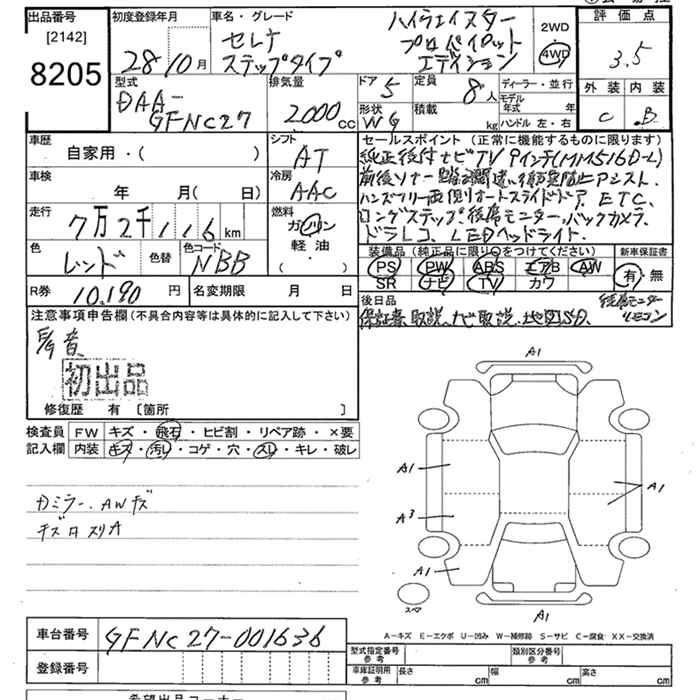 出品番号
[2142]
8205
初度登録年月
28 10月
車名・グレード
セレナ
ステップタイプ
ハイウェイスター
プロパイロット
エディション
2WD
4WD
評価点
3.5
外装 内装
C B
型式
DAA-
GFNC27
排気量
2000cc
ドア 5
定員 8人
形状 WG
積載 kg
ディーラー・並行
モデル年式 年
ハンドル 左・右
車歴
自家用・( )
車検
年 月( 日)
走行
7万2千116km
色
レッド
色替
色コード
NBB
シフト
AT
冷房
AAC
燃料
ガソリン
軽油
( )
セールスポイント(正常に機能するものに限ります)
純正後付ナビTV アインテ(MM516D-L)
前後ソナー 踏み間違い衝突防止アシスト
ハンズフリー両側オートスライドドア、ETC、
ロングステップ後席モニター、バックカメラ、
ドラレコ、LEDヘッドライト.
装備品(純正品に限り○をつけてください)
PS PW ABS エアB AW
SR ナビ TV カワ
新車保証書
有・無
R券 10,190円
名変期限 月 日
後日品
保証書、取説、ナビ取説、地図SD、
後席モニター
リモコン
注意事項申告欄(不具合内容等は具体的に記入して下さい)
初出品
修復歴 有 [箇所 ]
検査員
記入欄
FW キズ・飛石・ヒビ割・リペア跡・×要
内装 キズ・汚レ・コゲ・穴・スレ・キレ・破レ
カミラー、AWキズ
A1
A1
A1
A3
A1
A1
スペア
A-キズ E-エクボ U-凹み W-補修跡 S-サビ C-腐食 XX-交換済
車台番号 GFNC27-001636
登録番号
型式指定番号
参考
類別区分番号
参考
車庫証明用
参考
長さ cm
幅 cm
高さ cm
希望出品コーナー